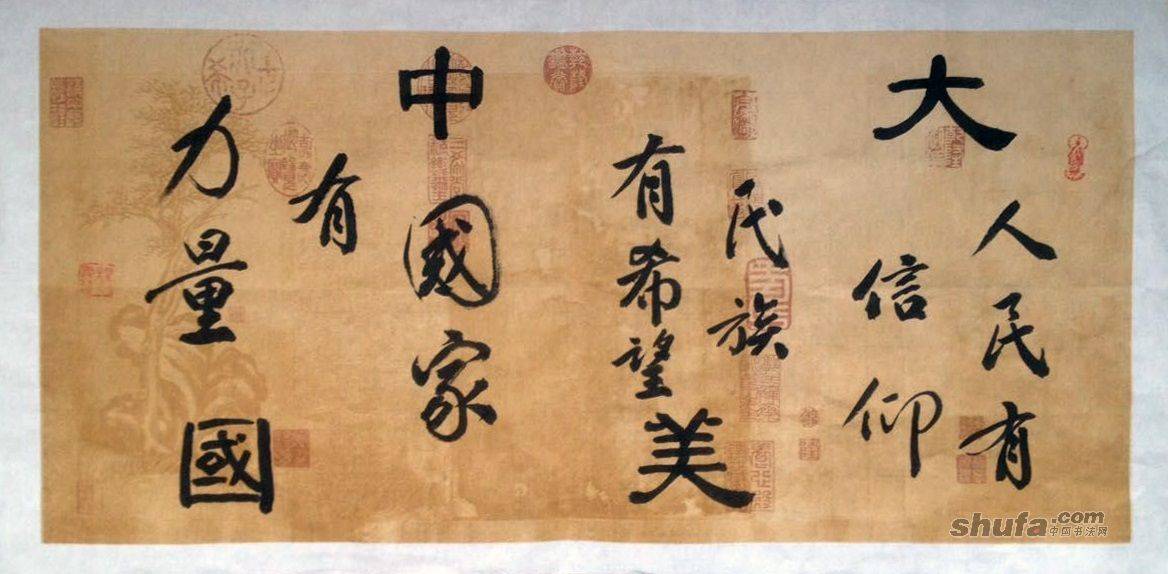 人民有
大信仰
民族
有希望美
中國家
有
力量國
shufa.com
中国书法网